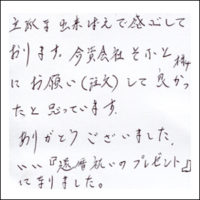 立派な出来栄えで感心して
おります。今資会社そふと様
にお願い(注文)して良かっ
たと思っています。
ありがとうございました。
いい『還暦祝いのプレゼント』
になりました。